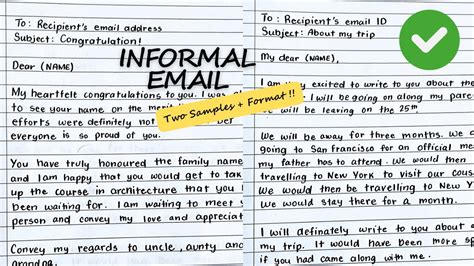 To : Recipient's email address
Subject: Congratulation!
Dear (NAME)
My heartfelt congratulations to you. I was
to see your name on the
efforts were definitely not
everyone is so proud of you.
You have truly honoured the family name
and I am happy that you would get to tak
up the course in architecture that you
been waiting for. I am waiting to meet
person and convey my love and appreciat
Convey my regards to uncle, aunty
INFORMAL
EMAIL
Two Samples + Format !!
To : Recipient's email ID
Subject : About my trip
My dear (NAME),
I am very excited to write to you about the
I will be going on along my pare
will be leaving on the 25th
We will be away for three months. We
going to San Francisco for an official me
my father has to attend. We would then
travelling to New York to visit our cous
We would then be travelling to New
We would stay there for a month.
I will definately write to you about
my trip. It would have been more
if you had came along with me.